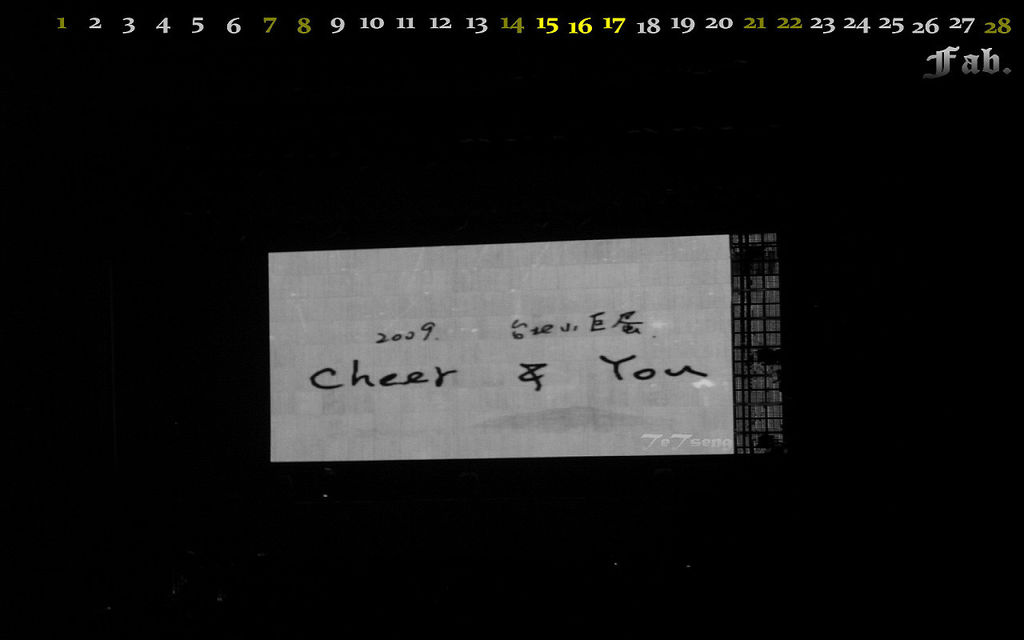 1 2 3 4 5 6 7 8 9 10 11 12 13 14 15 16 17 18 19 20 21 22 23 24 25 26 27 28
Fab.
2009. 台北小巨蛋.
Cheer & You
7e7seng